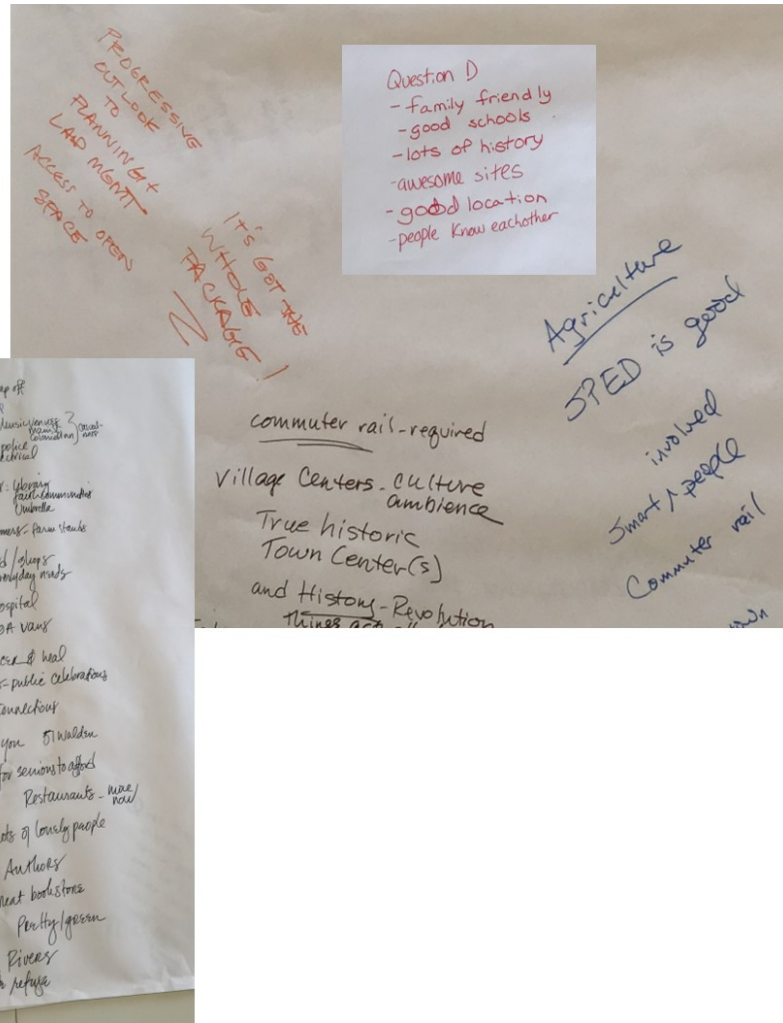 PROGRESSIVE
OUTLOOK
TO
PLANNING +
LAND MGMT
ACCESS TO OPEN
SPACE
IT'S GOT THE
WHOLE
PACKAGE!
Question D
- family friendly
- good schools
- lots of history
- awesome sites
- good location
- people know eachother
Agriculture
SPED is good
involved
Smart ^ people
Commuter rail
commuter rail - required
Village Centers - culture
ambience
True historic
Town Center(s)
and History - Revolution
things
police
library
faith communities
Umbrella
farm stands
/shops
everyday needs
vans
heal
- public celebrations
connections
you 51 Walden
for seniors to afford
Restaurants - more
now
lots of lovely people
Authors
great bookstore
Pretty/green
Rivers
refuge